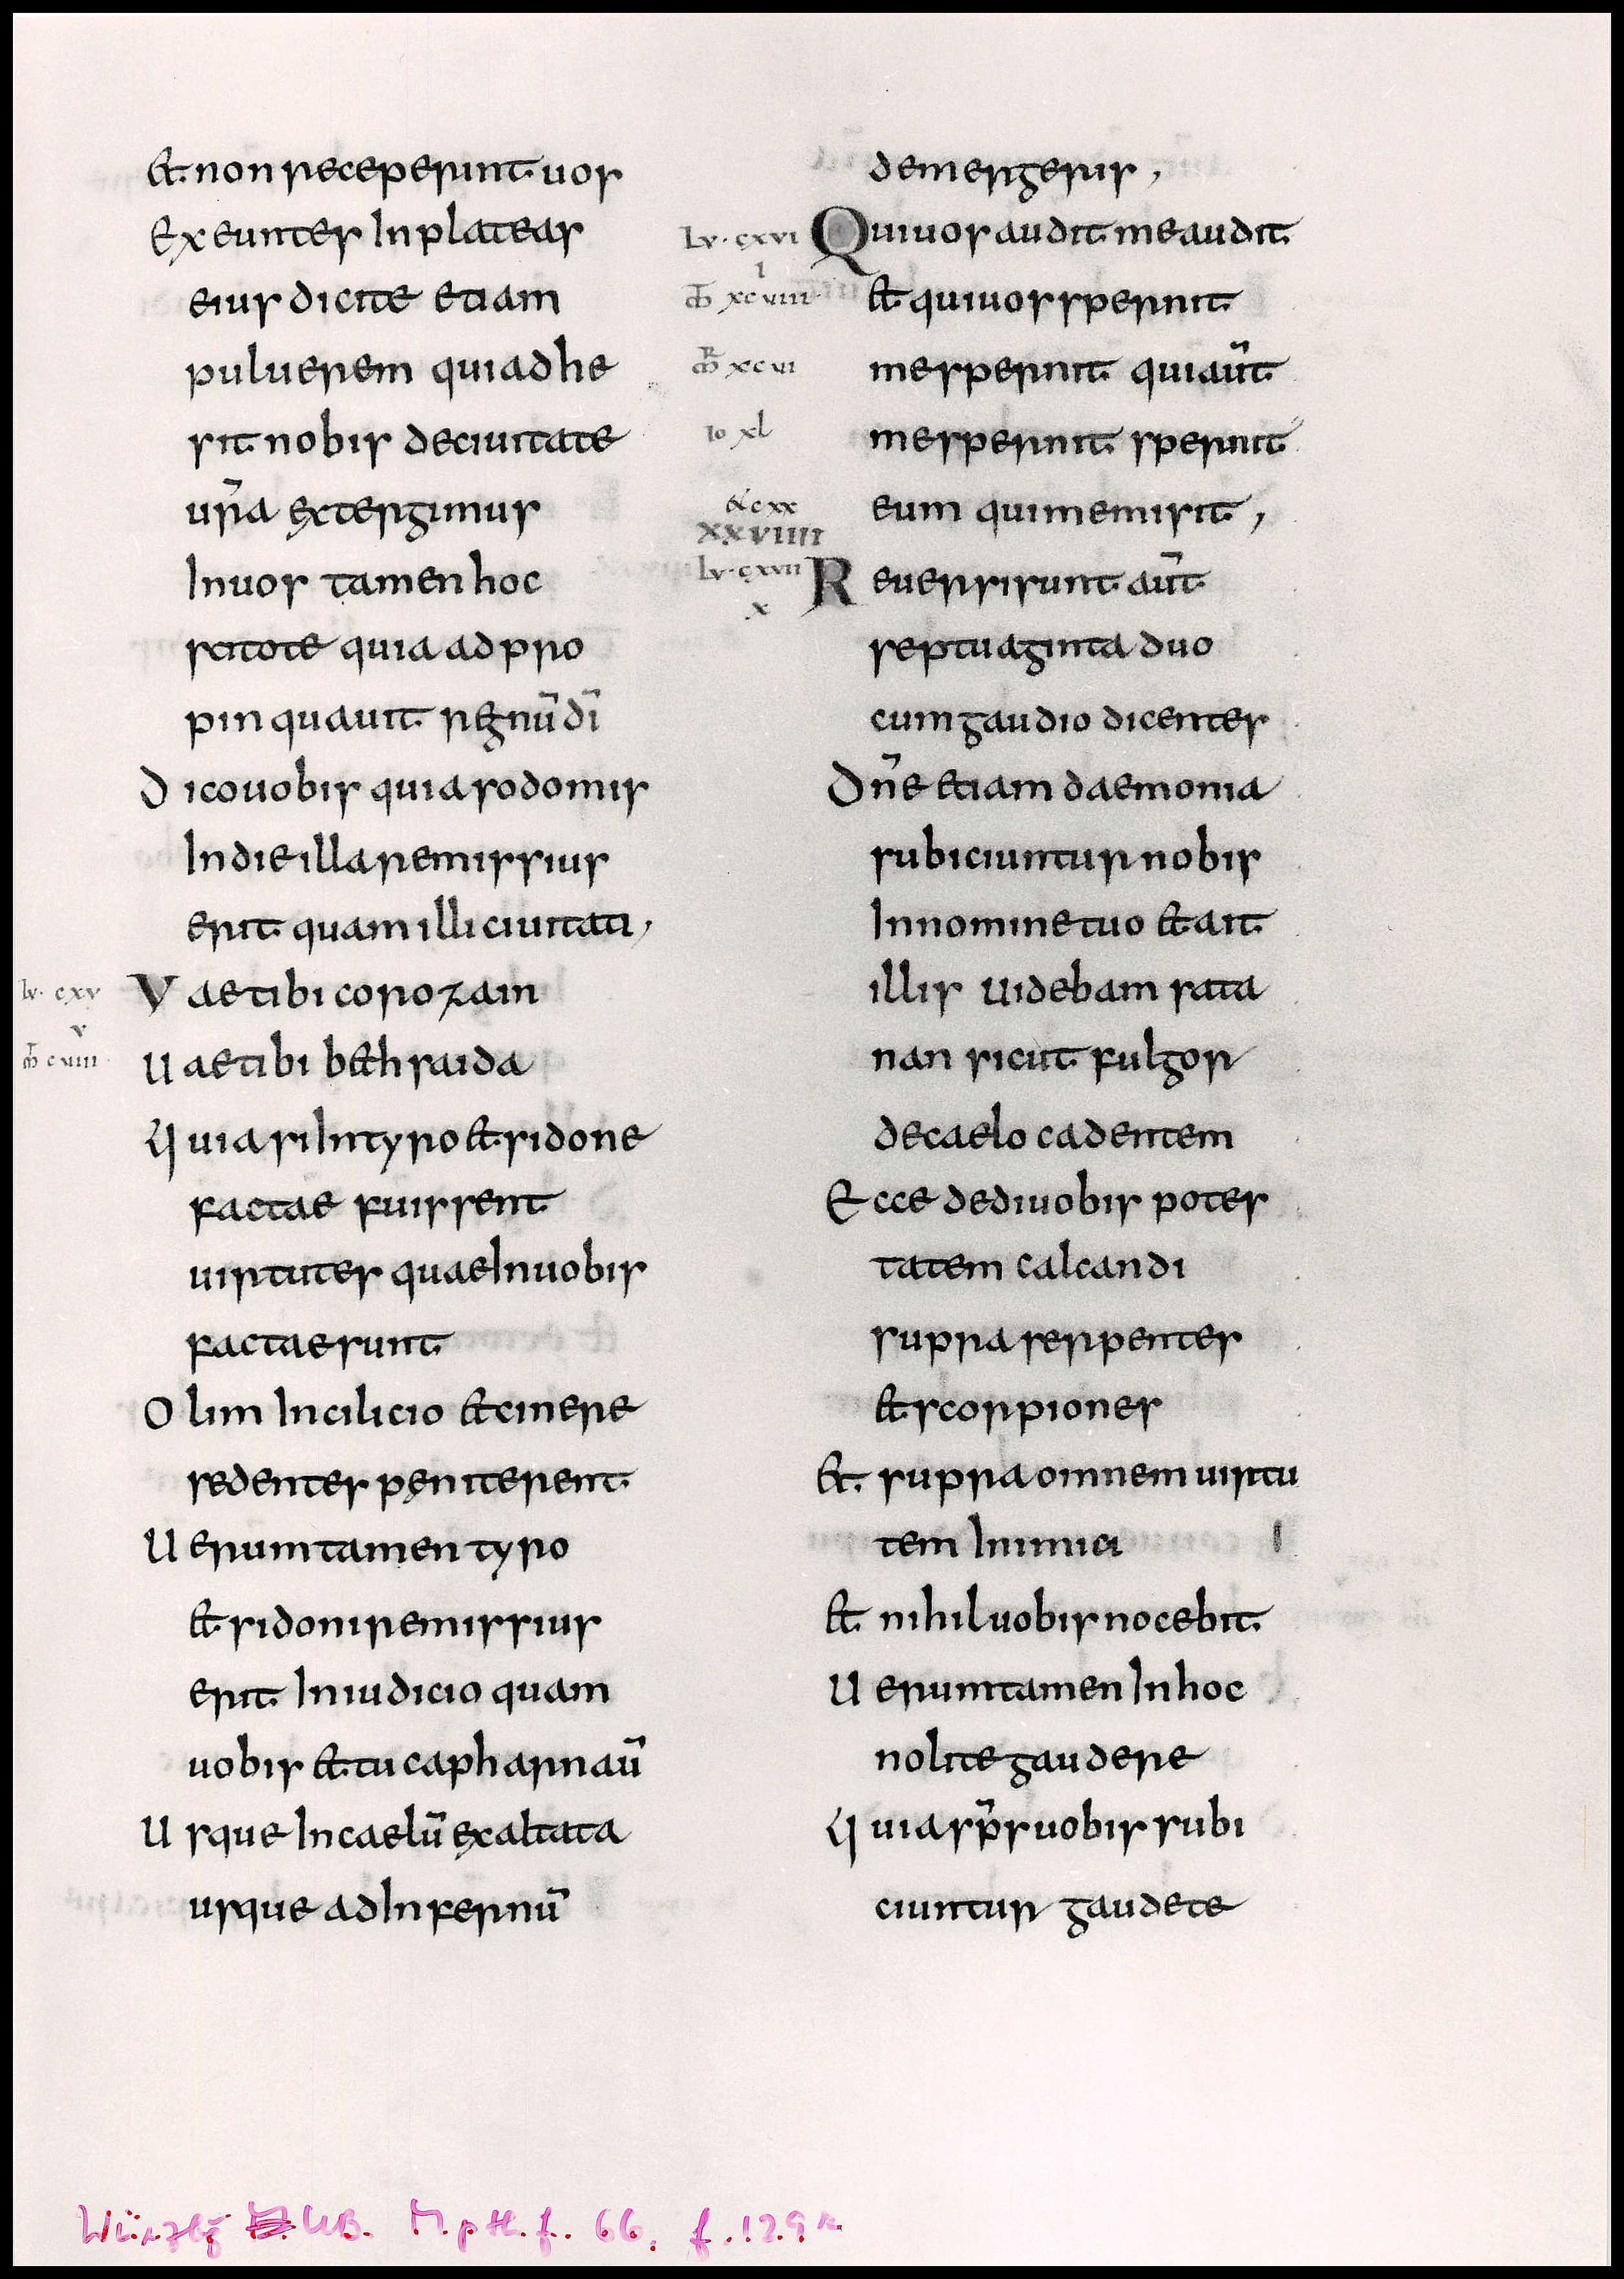 et non receperint uos
Exeuntes In plateas
eius dicite etiam
puluerem qui adhe
sit nobis de ciuitate
ur̄a extergimus
In uos tamen hoc
scitote quia adpro
pinquauit regnū dī
Dico uobis quia sodomis
In die illa remissius
erit quam illi ciuitati,
lv. cxv
v
cviii
Vae tibi corozain
Uae tibi bethsaida
Quia si In tyro et sidone
factae fuissent
uirtutes quae In uobis
factae sunt
Olim In cilicio et cinere
sedentes peniterent
Uerumtamen tyro
et sidoni remissius
erit In iudicio quam
uobis et tu capharnaū
Usque In caelū exaltata
usque ad Infernū
demergeris,
Lv. cxvi
I
xcviii
xcvi
Io xl
et cxx
XXVIIII
Lv. cxvii
x
Qui uos audit me audit
et qui uos spernit
me spernit qui aūt
me spernit spernit
eum qui me misit,
Reuersi sunt aūt
septuaginta duo
cum gaudio dicentes
Dn̄e etiam daemonia
subiciuntur nobis
In nomine tuo et ait
illis uidebam sata
nan sicut fulgor
de caelo cadentem
Ecce dedi uobis potes
tatem calcandi
supra serpentes
et scorpiones
et supra omnem uirtu
tem Inimici
et nihil uobis nocebit
Uerumtamen In hoc
nolite gaudere
Quia sp̄s uobis subi
ciuntur gaudete
Würzbg UB. M.p.th.f. 66, f. 129r.